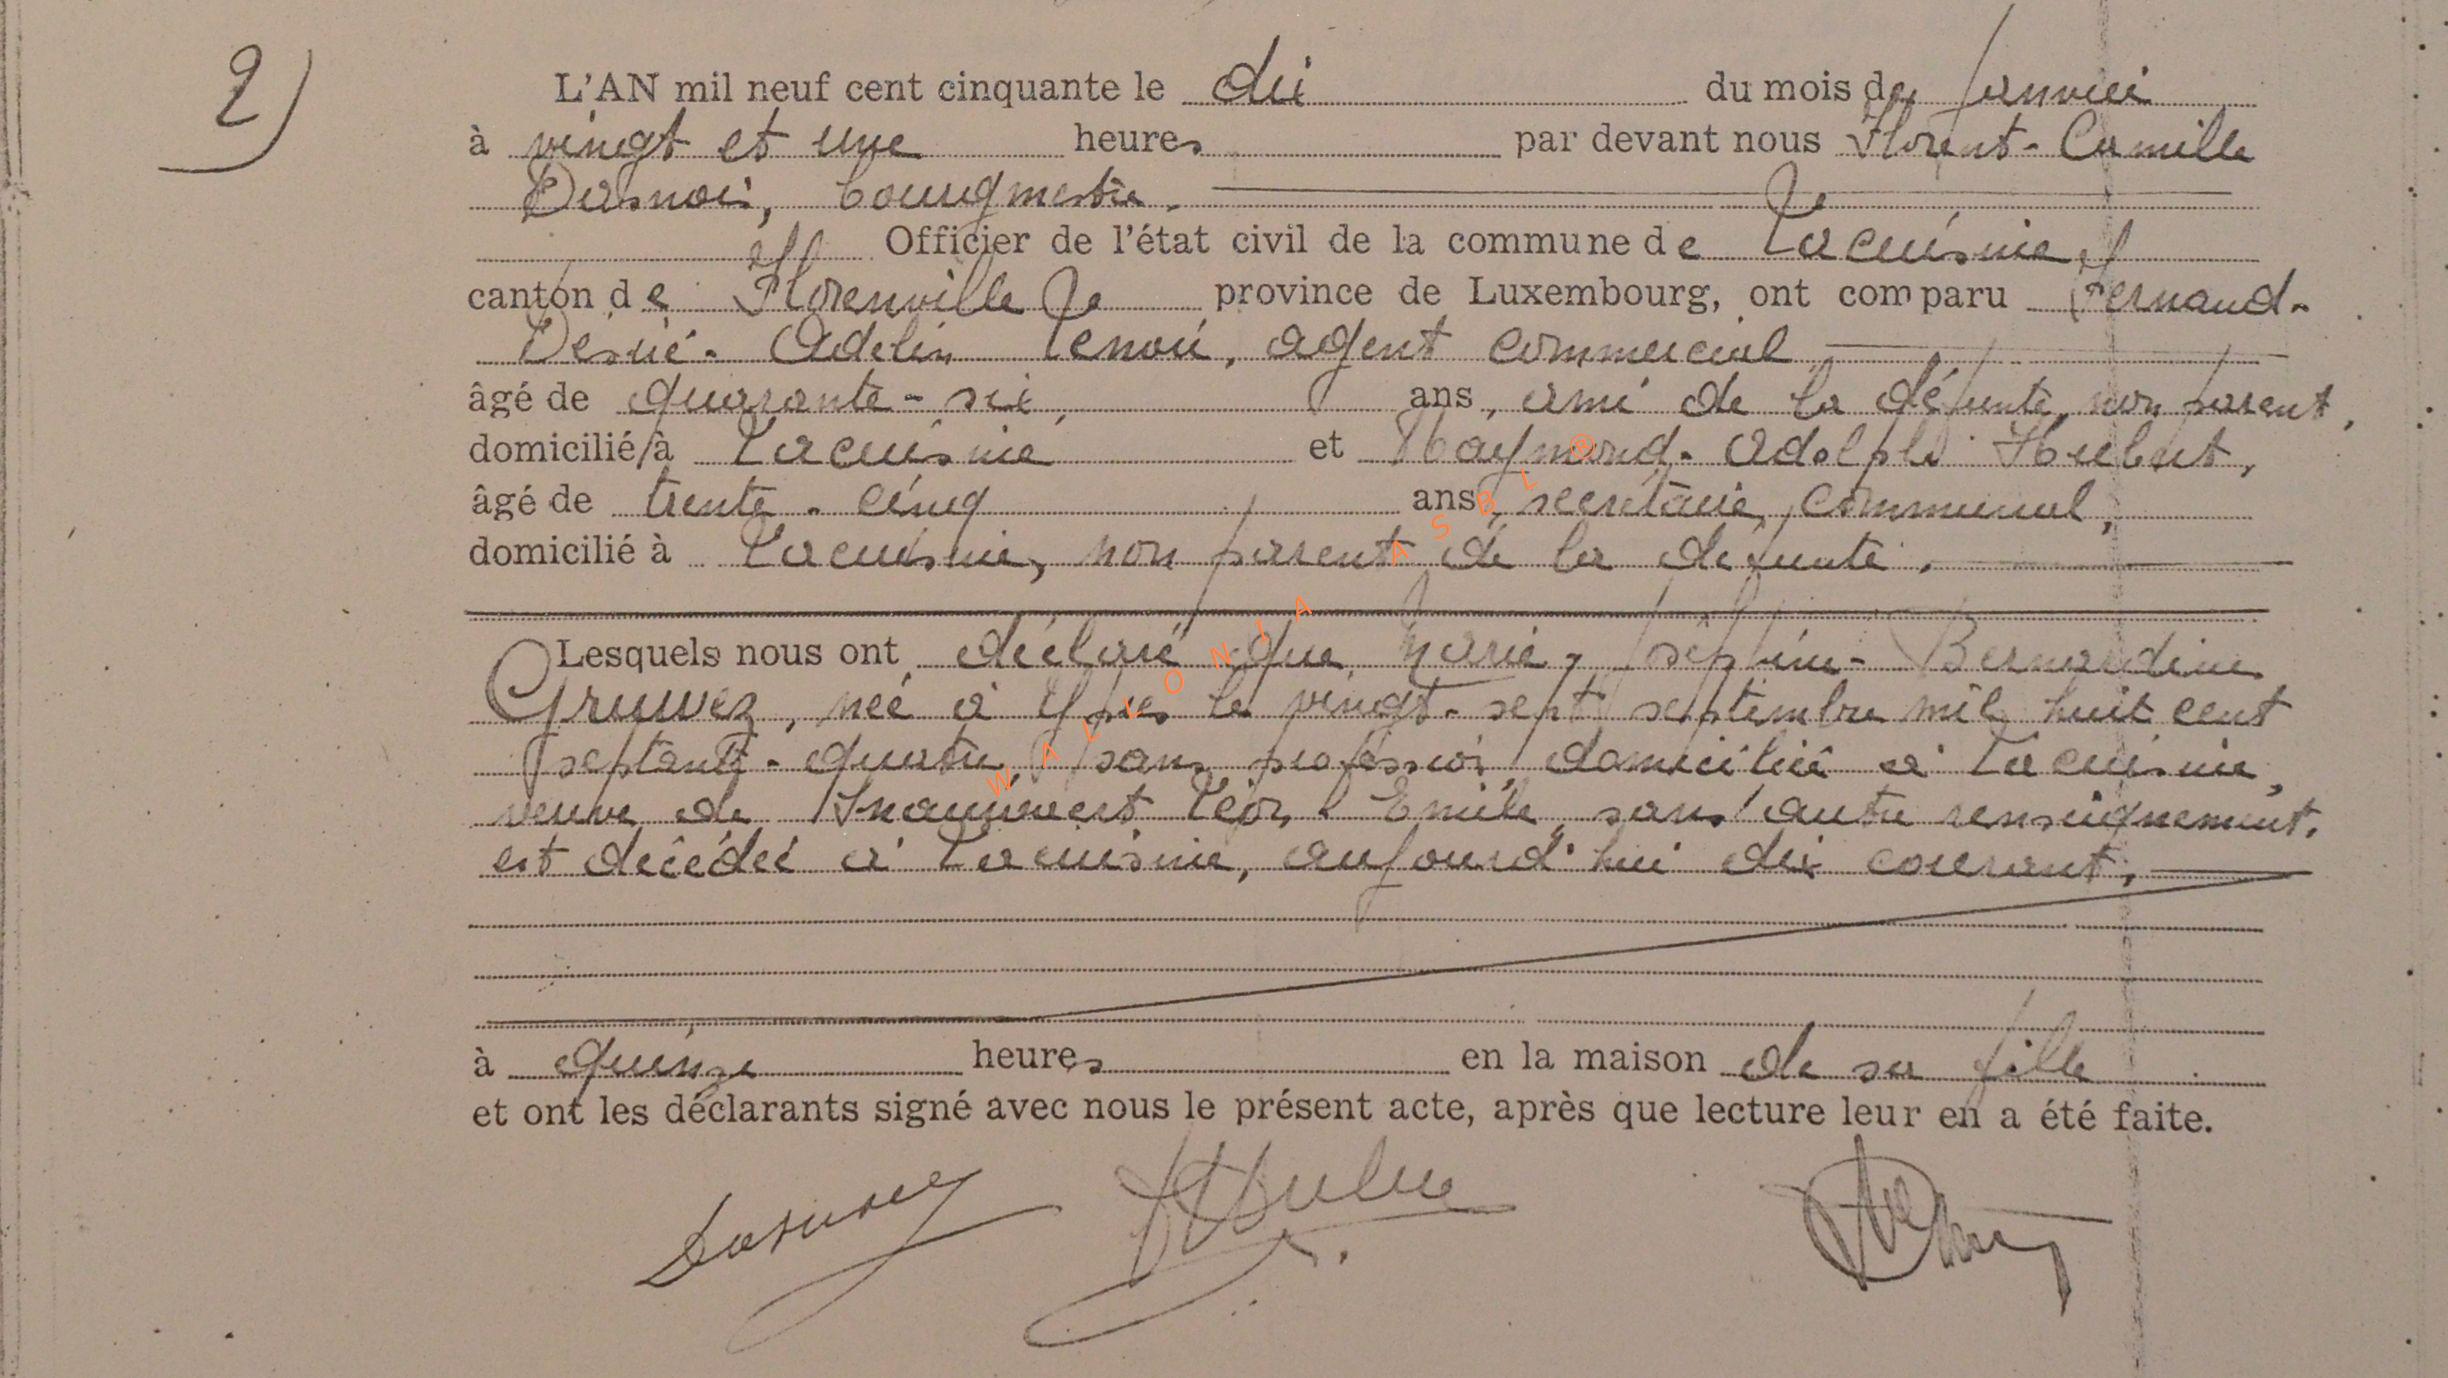 2)
L'AN mil neuf cent cinquante le dix du mois de janvier
à vingt et une heures par devant nous Florent-Camille
Dasnois, bourgmestre.
Officier de l'état civil de la commune de Lacuisine
canton de Florenville province de Luxembourg, ont comparu Fernand-
Désiré-Adelin Lenoir, agent commercial
âgé de quarante-six ans, ami de la défunte, non parent,
domicilié à Lacuisine et Raymond-Adolphe Hubert,
âgé de trente-cinq ans, secrétaire communal,
domicilié à Lacuisine, non parent de la défunte.
Lesquels nous ont déclaré que Marie-Joséphine-Bernardine
Gruwez, née à Ypres le vingt-sept septembre mil huit cent
septante-quatre, sans profession, domiciliée à Lacuisine,
veuve de Léon-Emile, sans autre renseignement,
est décédée à Lacuisine, aujourd'hui dix courant,
à quinze heures en la maison de sa fille
et ont les déclarants signé avec nous le présent acte, après que lecture leur en a été faite.
WALLONIA ASBL ®